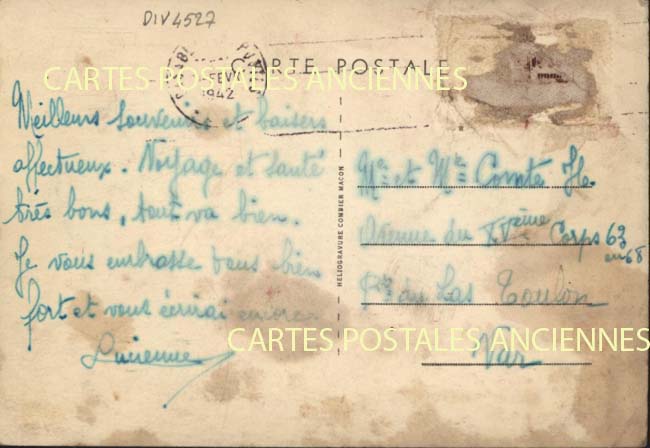 DIV4527
CARTE POSTALE
FEV
1942
CARTES POSTALES ANCIENNES
Meilleurs souvenirs et baisers
affectueux. Voyage et santé
très bons, tout va bien.
Je vous embrasse tous bien
fort et vous écrirai encore
Lucienne
HELIOGRAVURE COMBIER MACON
Mr et Mme Comte H.
Avenue du XVème Corps 63
ou 68
du Las Toulon
Var
CARTES POSTALES ANCIENNES